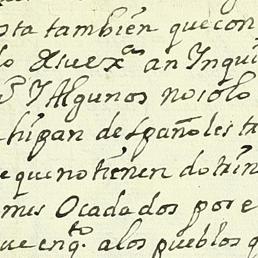 sta también que con
lo Exsuex.as an Inqui
P.e Y Algunos no solo
higan despañoles tr
e que no tienen dotrin
mes Ocadados por e
ue enq.to alos pueblos q